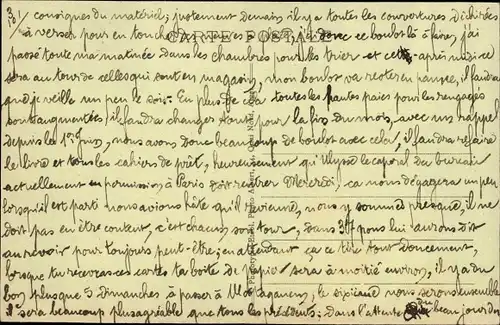 3/ consignes du matériel; justement demain il y a toutes les couvertures déchirées
à verser pour en toucher d'autres, j'ai donc ce boulot là à faire, j'ai
CARTE POSTALE
passé toute ma matinée dans les chambres pour les trier et cet après midi ce
sera au tour de celles qui sont en magasin, mon boulot va rester en panne, il faudra
que je veille un peu le soir. En plus de cela toutes les hautes paies pour les rengagés
sont augmentées, il faudra changer tout pour la fin du mois, avec un rappel
depuis le 1er, nous avons donc beaucoup de boulot avec cela, il faudra refaire
le livre et tous les cahiers de prêt, heureusement qu'Ulysse le caporal du bureau
actuellement en permission à Paris doit rentrer Mercredi, ça nous dégagera un peu
lorsqu'il est parti nous avions hâte qu'il revienne, nous y sommes presque, il ne
doit pas en être content, c'est chacun son tour, dans nous lui aurons dit
au revoir pour toujours peut-être; en attendant ça se tire tout doucement,
lorsque tu recevras ces cartes ta boite de papier sera à moitié environ, il y a du
bon, plus que 5 dimanches à passer à Mostaganem, le sixième nous serons ensemble
il sera beaucoup plus agréable que tous les précédents; dans l'attente du beau jour de